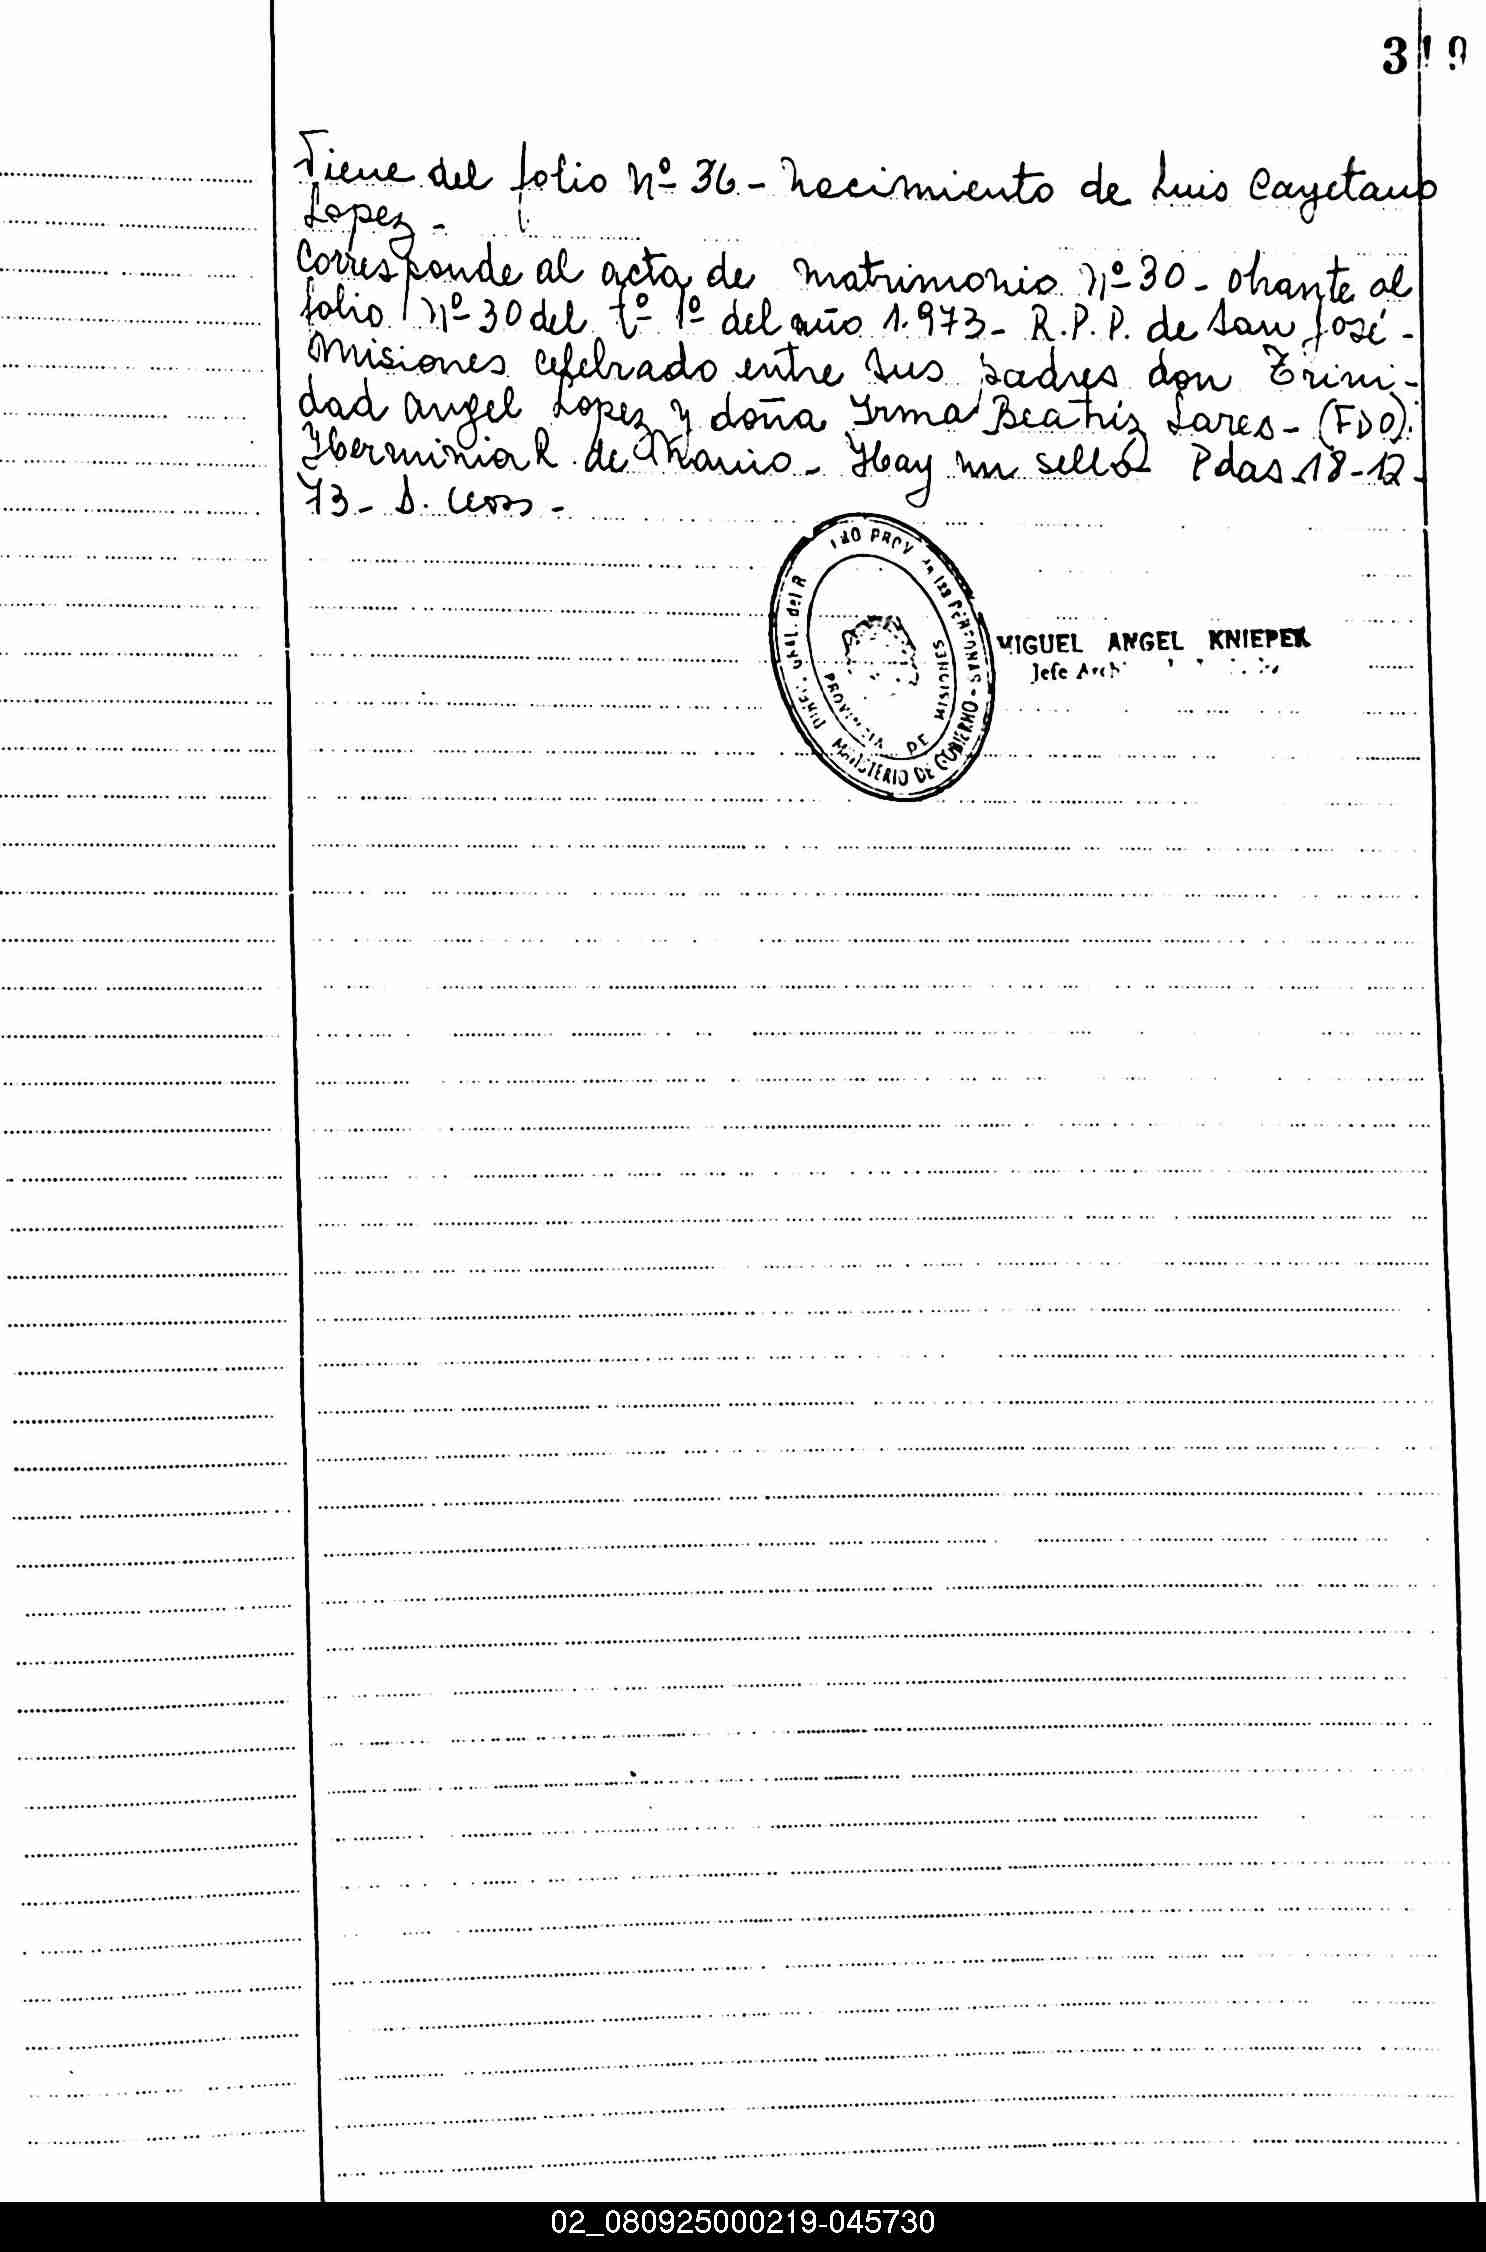 319
Viene del folio Nº 36 - Nacimiento de Luis Cayetano
Lopez -
Corresponde al acta de Matrimonio Nº 30 - obrante al
folio Nº 30 del tº 1º del año 1.973 - R.P.P. de San José -
Misiones celebrado entre sus padres don Trini-
dad Angel Lopez y doña Irma Beatriz Lares - (FDO).
Herminia R. de - Hay un sello Pdas 18-12-
73 -
PROVINCIA DE MISIONES
MINISTERIO DE GOBIERNO
MIGUEL ANGEL KNIEPER
Jefe
02_080925000219-045730